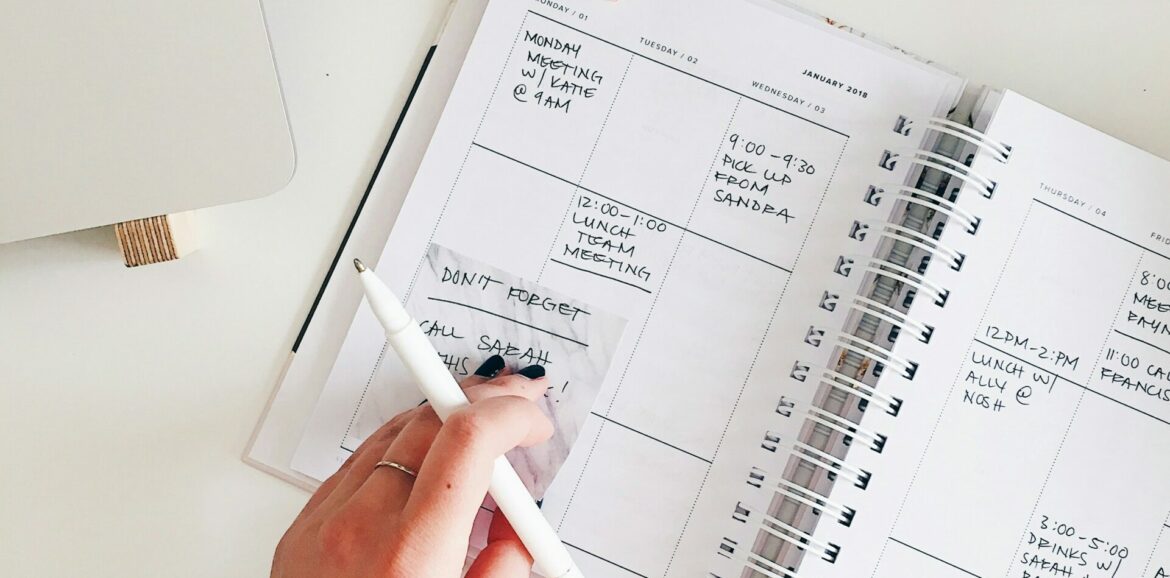 MONDAY / 01
TUESDAY / 02
WEDNESDAY / 03
JANUARY 2018
MONDAY
MEETING
W/ KATIE
@ 9AM
12:00-1:00
LUNCH
TEAM
MEETING
9:00-9:30
PICK UP
FROM
SANDRA
DON'T FORGET
CALL SARAH
THIS !
THURSDAY / 04
FRID
12PM-2:PM
LUNCH W/
ALLY @
NOSH
8:00
MEE
RAYN
11:00 CAL
FRANCIS
3:00-5:00
DRINKS W/
SARAH